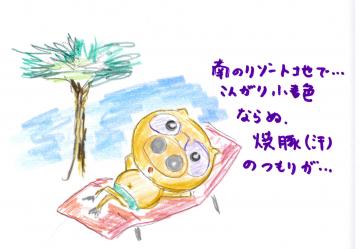 南のリゾート地で…
こんがり小麦色
ならぬ、
焼豚(汗)
のつもりが…